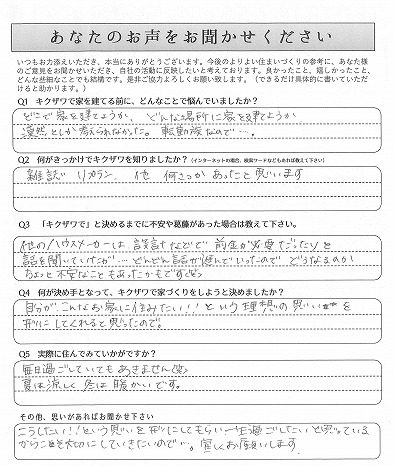 あなたのお声をお聞かせください
いつもお力添えいただき、本当にありがとうございます。今後のよりよい住まいづくりの参考に、あなた様
のご意見をお聞かせいただき、自社の活動に反映したいと考えております。良かったこと、嬉しかったこと、
どんな些細なことでも結構です。是非ご協力よろしくお願い致します。（できるだけ具体的に書いていただ
けると助かります。）
Q1 キクザワで家を建てる前に、どんなことで悩んでいましたか？
どこで家を建てようか、どんな場所に家を建てようか
漠然としか考えられなかった。転勤族なので…。
Q2 何がきっかけでキクザワを知りましたか？（インターネットの場合、検索ワードなどもあれば教えて下さい）
雑誌 リプラン、他 何さつか あったと思います
Q3 「キクザワで」と決めるまでに不安や葛藤があった場合は教えて下さい。
他のハウスメーカーは 設計などで 前金が必要だったりと
話を聞いていたが…どんどん話が進んでいったので どうなるのか
ちょっと不安なこともあったかもです(笑)
Q4 何が決め手となって、キクザワで家づくりをしようと決めましたか？
自分が、こんなお家に住みたい!!という理想の思いを
形にしてくれると思ったので。
Q5 実際に住んでみていかがですか？
毎日過ごしていてもあきません(笑)
夏は涼しく 冬は暖かいです。
その他、思いがあればお聞かせ下さい
こうしたい!!という思いを形にしてもらい一生過ごしたいと思っている
からこそ大切にしていきたいので…。宜しくお願いします